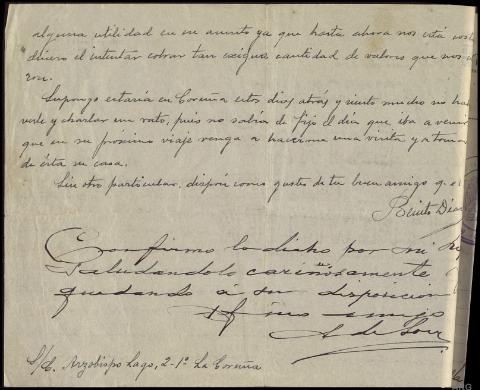 alguna utilidad en su asunto ya que hasta ahora nos está cost
dinero el intentar cobrar tan exigua cantidad de valores que nos
ron.
Supongo estaría en Coruña estos días atrás y siento mucho no ha
verle y charlar un rato, pues no sabía de fijo el día que iba a venir
que en su próximo viaje venga a hacerme una visita y a tomar
de ésta su casa.
Sin otro particular, dispón como gustes de tu buen amigo q. e
Benito Día
Confirmo lo dicho por mi
saludandolo cariñosamente
quedando á su disposicion
amigo
S/C. Arzobispo Lago, 2-1º La Coruña